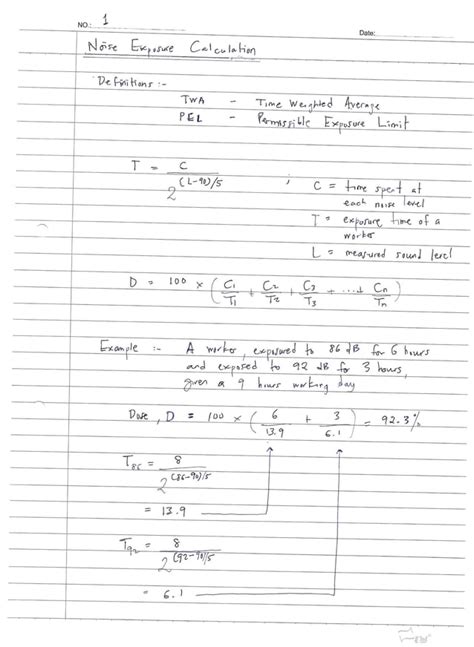 NO.: 1
Date:
Noise Exposure Calculation
Definitions :-
TWA - Time Weighted Average
PEL - Permissible Exposure Limit
T = C / 2^(L-90)/5 , C = time spent at
each noise level
T = exposure time of a
worker
L = measured sound level
D = 100 × ( C1/T1 + C2/T2 + C3/T3 + ... + Cn/Tn )
Example :- A worker, exposured to 86 dB for 6 hours
and exposed to 92 dB for 3 hours,
given a 9 hours working day
Dose, D = 100 × ( 6/13.9 + 3/6.1 ) = 92.3%
T86 = 8 / 2^(86-90)/5
= 13.9
T92 = 8 / 2^(92-90)/5
= 6.1